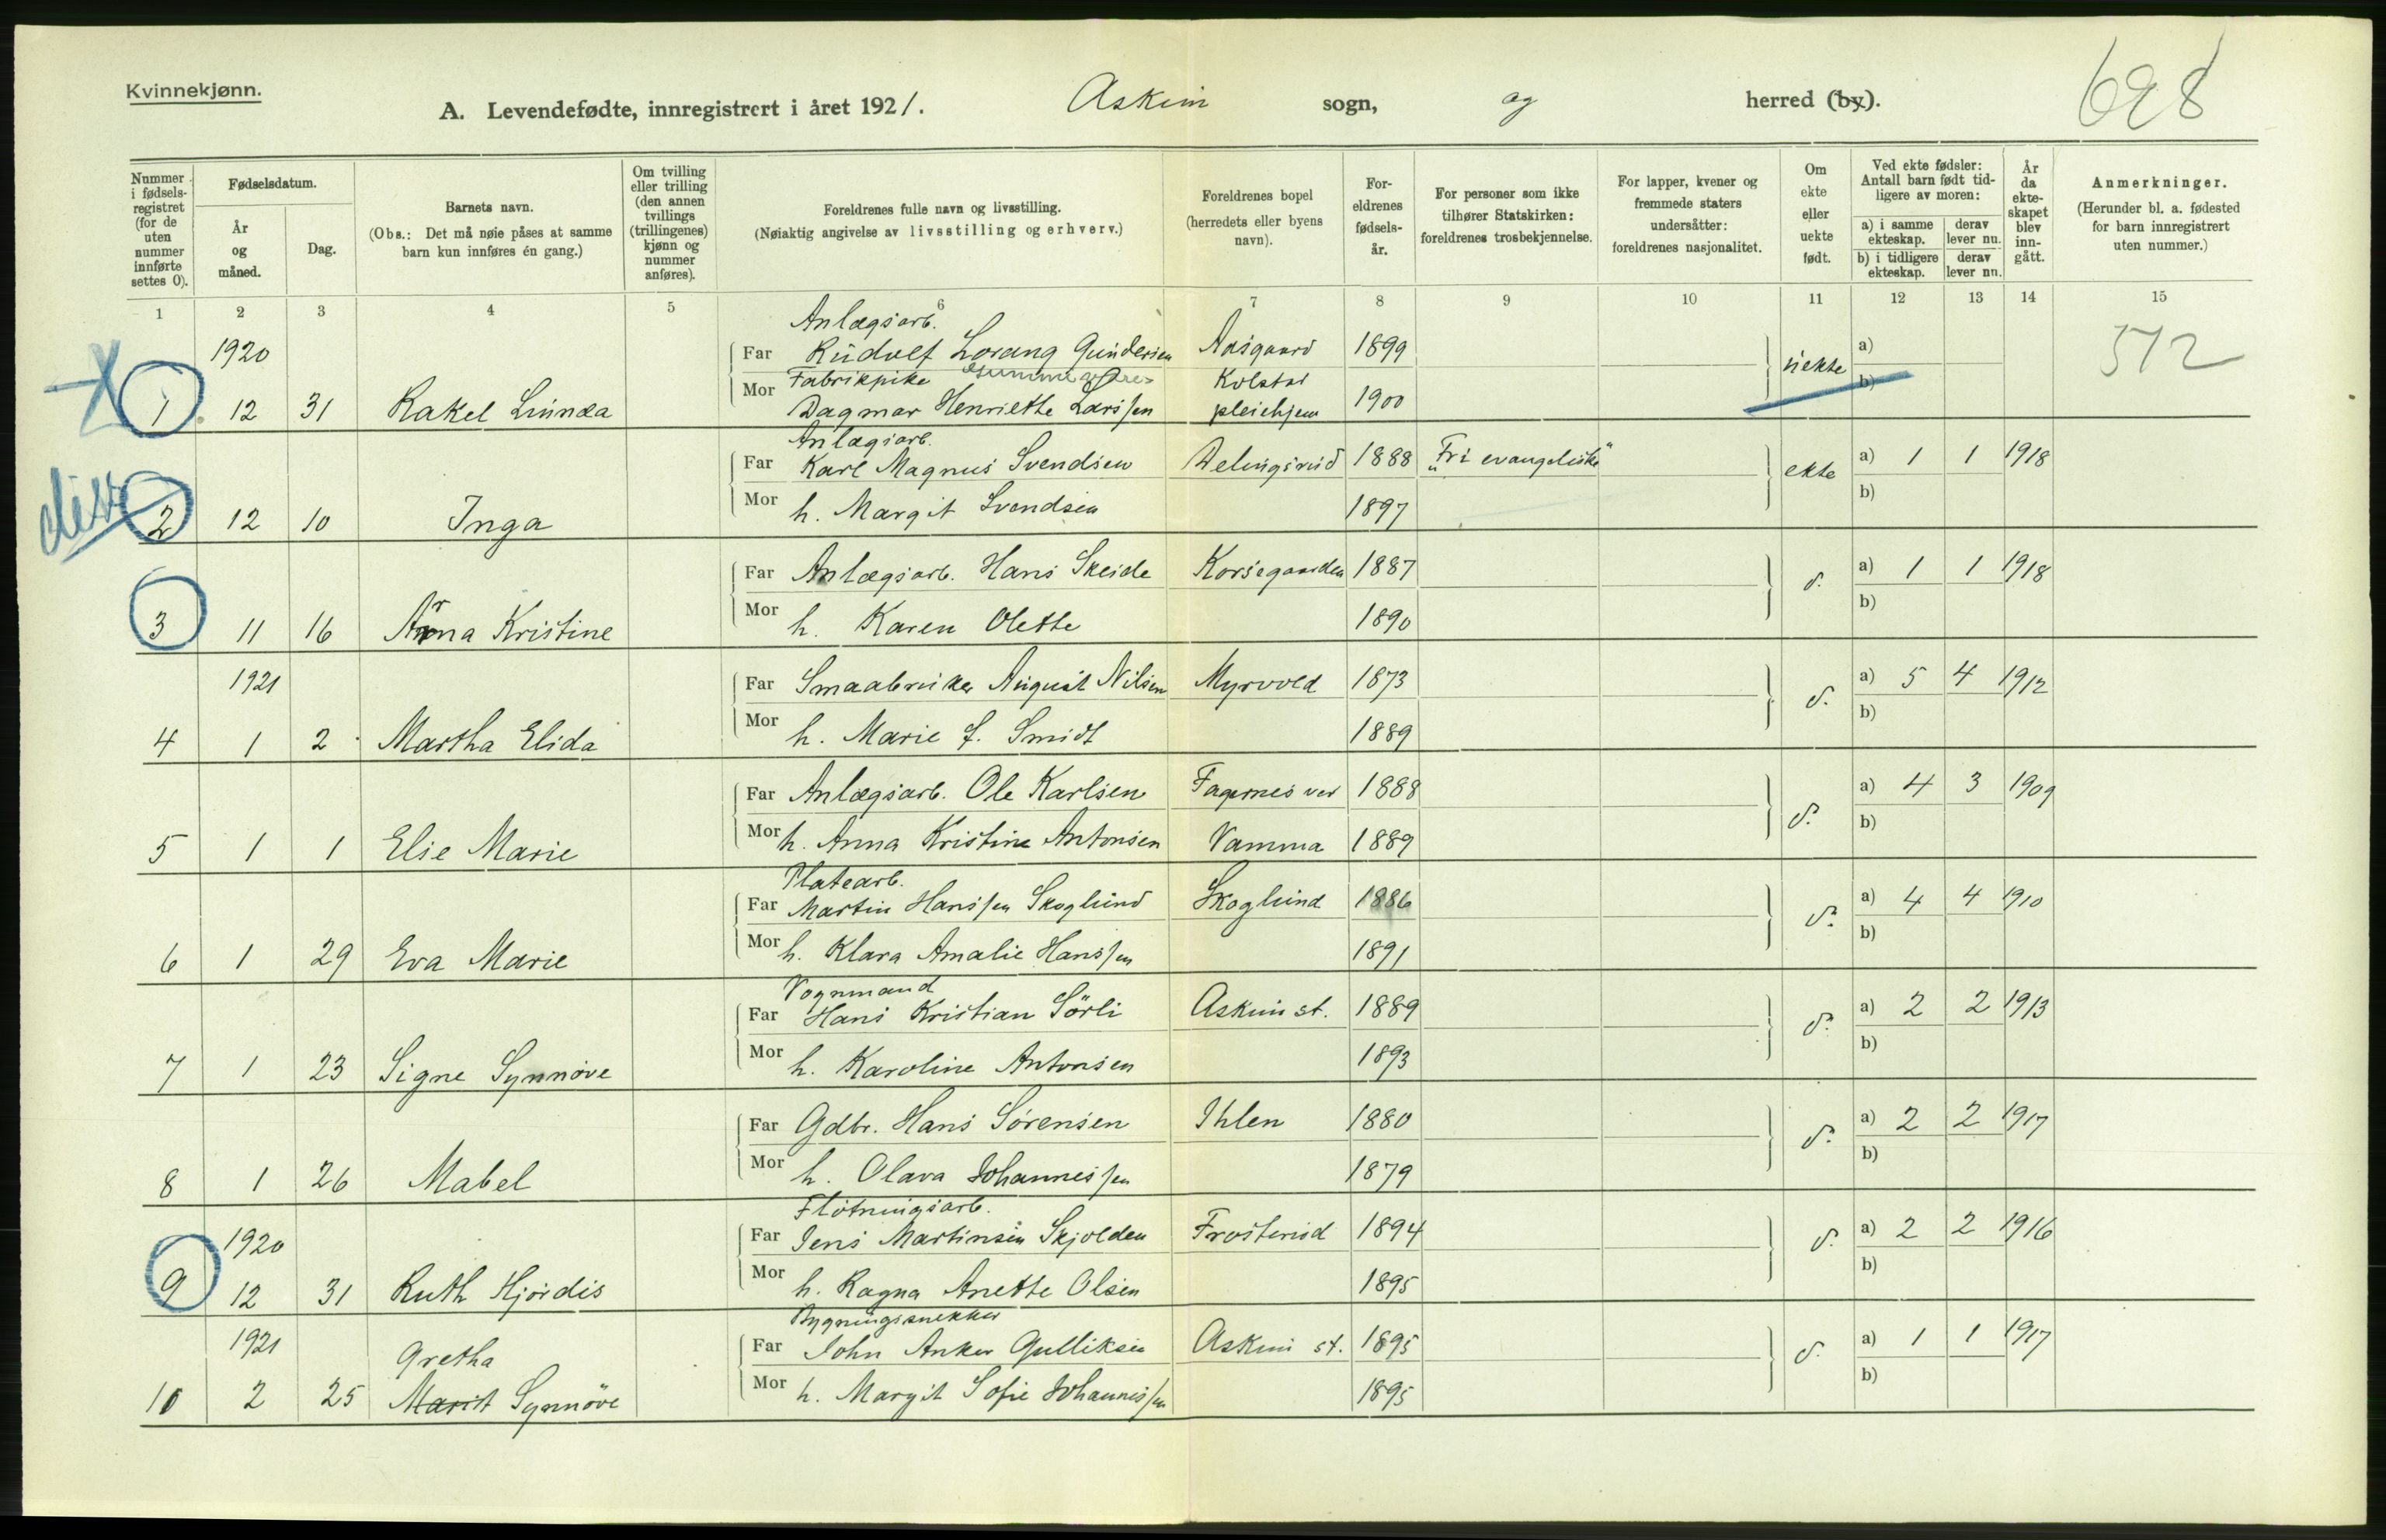 Kvinnekjønn.
A. Levendefødte, innregistrert i året 1921. Askim sogn, og herred (by). 698
Nummer i fødselsregistret (for de uten nummer innførte settes 0).
Fødselsdatum.
År og måned.
Dag.
Barnets navn.
(Obs.: Det må nøie påses at samme barn kun innføres én gang.)
Om tvilling eller trilling (den annen tvillings (trillingenes) kjønn og nummer anføres).
Foreldrenes fulle navn og livsstilling.
(Nøiaktig angivelse av livsstilling og erhverv.)
Foreldrenes bopel
(herredets eller byens navn).
Foreldrenes fødselsår.
For personer som ikke tilhører Statskirken: foreldrenes trosbekjennelse.
For lapper, kvener og fremmede staters undersåtter: foreldrenes nasjonalitet.
Om ekte eller uekte født.
Ved ekte fødsler: Antall barn født tidligere av moren:
a) i samme ekteskap. derav lever nu.
b) i tidligere ekteskap. derav lever nu.
År da ekteskapet blev inngått.
Anmerkninger.
(Herunder bl. a. fødested for barn innregistrert uten nummer.)
1 2 3 4 5 6 7 8 9 10 11 12 13 14 15
Anlægsarb.
1920 Far Rudolf Lorang Gundersen Aasgaard 1899 uekte a) 512
Fabrikpike Kolstad b)
1 12 31 Rakel Lunda Mor Dagmar Henriette Larssen pleiehjem 1900
Anlægsarb.
Far Karl Magnus Svendsen Delingsrud 1888 "Fri evangeliske" ekte a) 1 1 1918
2 12 10 Inga Mor h. Margit Svendsen 1897 b)
Far Anlægsarb. Hans Skeide Korsegaarden 1887 d. a) 1 1 1918
3 11 16 Arna Kristine Mor h. Karen Olette 1890 b)
1921 Far Smaabruker August Nilsen Myrvold 1873 d. a) 5 4 1912
4 1 2 Martha Elida Mor h. Marie F. Smidt 1889 b)
Far Anlægsarb. Ole Karlsen Fagernes ved 1888 d. a) 4 3 1909
5 1 1 Elie Marie Mor h. Anna Kristine Antonsen Vamma 1889 b)
Platearb.
Far Martin Hanssen Skoglund Skoglund 1886 d. a) 4 4 1910
6 1 29 Eva Marie Mor h. Klara Amalie Hanssen 1891 b)
Vognmand
Far Hans Kristian Sörli Askim st. 1889 d. a) 2 2 1913
7 1 23 Signe Synnöve Mor h. Karoline Antonsen 1893 b)
Far Gdbr. Hans Sørensen Ihlen 1880 d. a) 2 2 1917
8 1 26 Mabel Mor h. Olava Johannessen 1879 b)
Fløtningsarb.
1920 Far Jens Martinsen Skjolden Frosterud 1894 d. a) 2 2 1916
9 12 31 Ruth Hjördis Mor h. Ragna Anette Olsen 1895 b)
Bygningssnekker
1921 Gretha Far John Anker Gulliksen Askim st. 1895 d. a) 1 1 1917
10 2 25 Marit Synnöve Mor h. Margit Sofie Johannessen 1895 b)